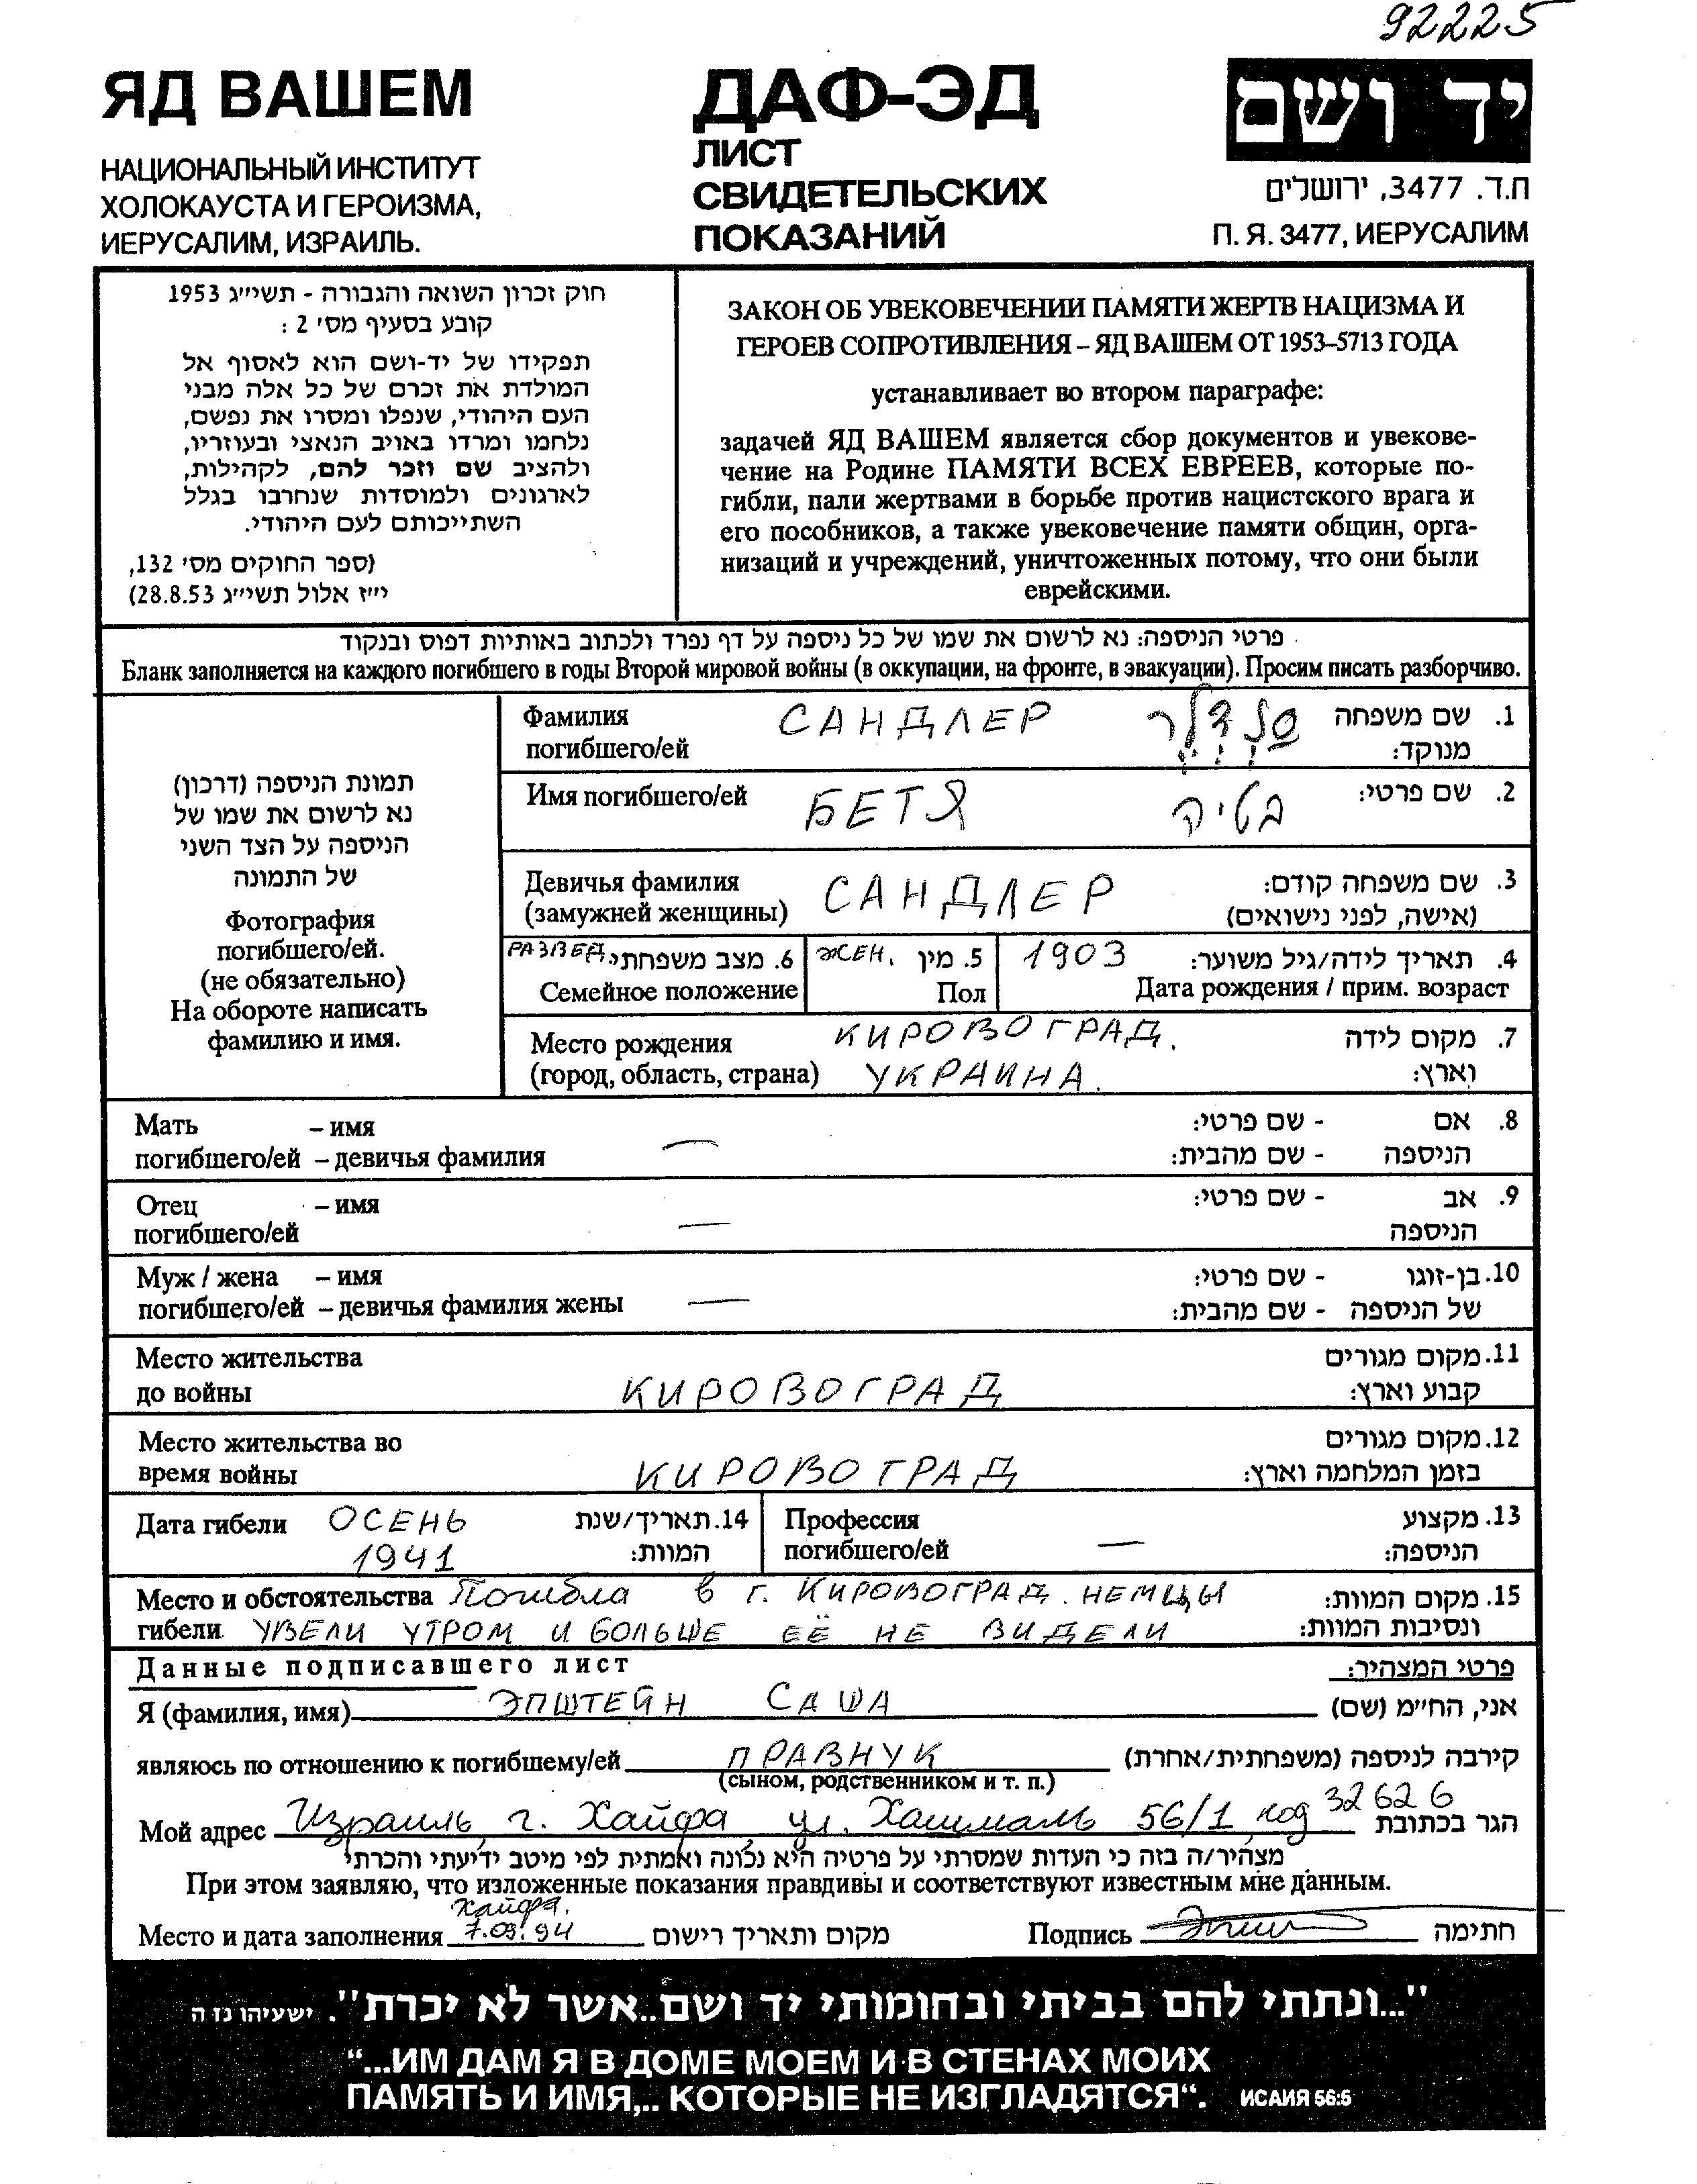 92225
ЯД ВАШЕМ
НАЦИОНАЛЬНЫЙ ИНСТИТУТ
ХОЛОКАУСТА И ГЕРОИЗМА,
ИЕРУСАЛИМ, ИЗРАИЛЬ.
ДАФ-ЭД
ЛИСТ
СВИДЕТЕЛЬСКИХ
ПОКАЗАНИЙ
יד ושם
ת.ד. 3477, ירושלים
П. Я. 3477, ИЕРУСАЛИМ
חוק זכרון השואה והגבורה - תשי״ג 1953
קובע בסעיף מס׳ 2 :
תפקידו של יד-ושם הוא לאסוף אל
המולדת את זכרם של כל אלה מבני
העם היהודי, שנפלו ומסרו את נפשם,
נלחמו ומרדו באויב הנאצי ובעוזריו,
ולהציב שם וזכר להם, לקהילות,
לארגונים ולמוסדות שנחרבו בגלל
השתייכותם לעם היהודי.
(ספר החוקים מס׳ 132,
י״ז אלול תשי״ג 28.8.53)
ЗАКОН ОБ УВЕКОВЕЧЕНИИ ПАМЯТИ ЖЕРТВ НАЦИЗМА И
ГЕРОЕВ СОПРОТИВЛЕНИЯ – ЯД ВАШЕМ ОТ 1953–5713 ГОДА
устанавливает во втором параграфе:
задачей ЯД ВАШЕМ является сбор документов и увекове-
чение на Родине ПАМЯТИ ВСЕХ ЕВРЕЕВ, которые по-
гибли, пали жертвами в борьбе против нацистского врага и
его пособников, а также увековечение памяти общин, орга-
низаций и учреждений, уничтоженных потому, что они были
еврейскими.
פרטי הניספה: נא לרשום את שמו של כל ניספה על דף נפרד ולכתוב באותיות דפוס ובנקוד
Бланк заполняется на каждого погибшего в годы Второй мировой войны (в оккупации, на фронте, в эвакуации). Просим писать разборчиво.
תמונת הניספה (דרכון)
נא לרשום את שמו של
הניספה על הצד השני
של התמונה
Фотография
погибшего/ей.
(не обязательно)
На обороте написать
фамилию и имя.
Фамилия САНДЛЕР סנדלר 1. שם משפחה
погибшего/ей מנוקד:
Имя погибшего/ей БЕТЯ בטיה 2. שם פרטי:
Девичья фамилия САНДЛЕР 3. שם משפחה קודם:
(замужней женщины) (אישה, לפני נישואים)
РАЗВЕД. 6. מצב משפחתי: ЖЕН. 5. מין 1903 4. תאריך לידה/גיל משוער:
Семейное положение Пол Дата рождения / прим. возраст
Место рождения КИРОВОГРАД. 7. מקום לידה
(город, область, страна) УКРАИНА. וארץ:
Мать – имя - שם פרטי: 8. אם
погибшего/ей – девичья фамилия — - שם מהבית: הניספה
Отец – имя - שם פרטי: 9. אב
погибшего/ей — הניספה
Муж / жена – имя - שם פרטי: 10. בן-זוגו
погибшего/ей – девичья фамилия жены — - שם מהבית: של הניספה
Место жительства 11. מקום מגורים
до войны КИРОВОГРАД קבוע וארץ:
Место жительства во 12. מקום מגורים
время войны КИРОВОГРАД בזמן המלחמה וארץ:
Дата гибели ОСЕНЬ 14. תאריך/שנת Профессия 13. מקצוע
1941 המוות: погибшего/ей — הניספה:
Место и обстоятельства Погибла в г. КИРОВОГРАД. НЕМЦЫ 15. מקום המוות:
гибели УВЕЛИ УТРОМ И БОЛЬШЕ ЕЁ НЕ ВИДЕЛИ ונסיבות המוות:
Данные подписавшего лист פרטי המצהיר:
Я (фамилия, имя) ЭПШТЕЙН САША אני, הח״מ (שם)
являюсь по отношению к погибшему/ей ПРАВНУК קירבה לניספה (משפחתית/אחרת)
(сыном, родственником и т. п.)
Мой адрес Израиль, г. Хайфа, ул. Хашмаль 56/1, код 32626 הגר בכתובת
מצהיר/ה בזה כי העדות שמסרתי על פרטיה היא נכונה ואמתית לפי מיטב ידיעתי והכרתי
При этом заявляю, что изложенные показания правдивы и соответствуют известным мне данным.
Хайфа.
Место и дата заполнения 7.03.94 מקום ותאריך רישום Подпись חתימה
"...ונתתי להם בביתי ובחומותי יד ושם..אשר לא יכרת". ישעיהו נז ה
“...ИМ ДАМ Я В ДОМЕ МОЕМ И В СТЕНАХ МОИХ
ПАМЯТЬ И ИМЯ,.. КОТОРЫЕ НЕ ИЗГЛАДЯТСЯ“. ИСАИЯ 56:5